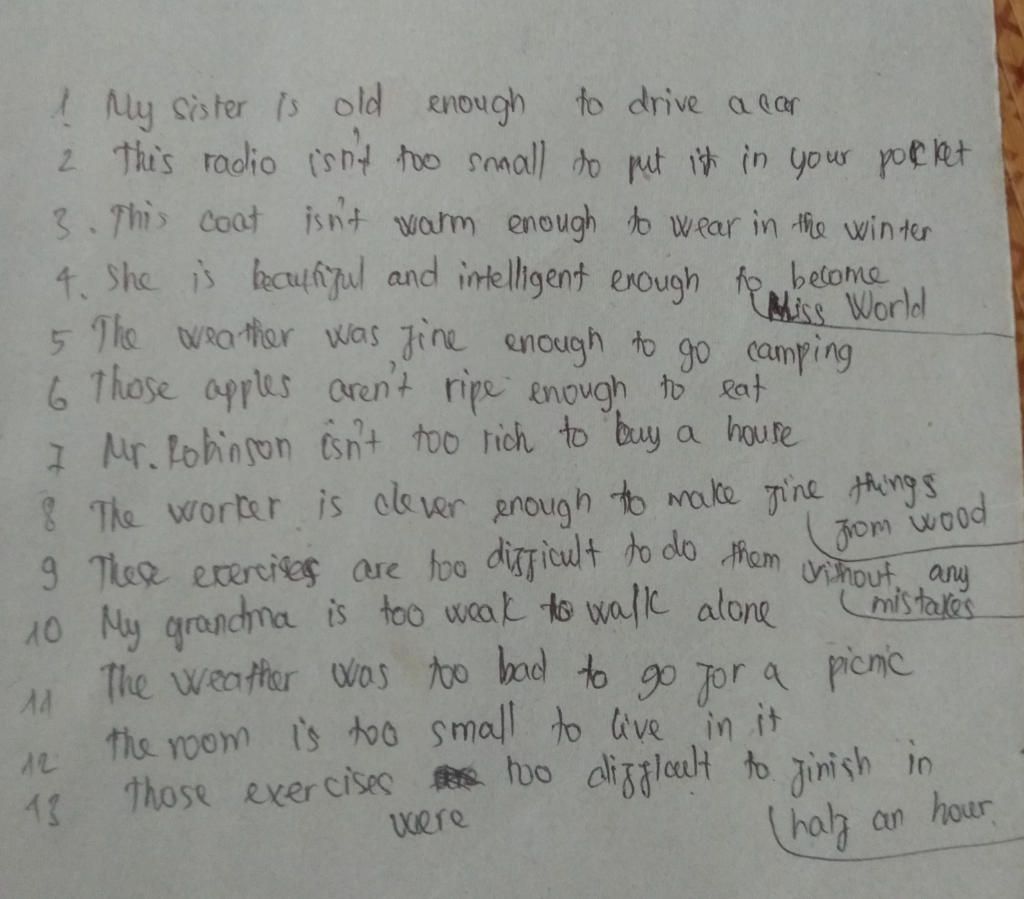 1 My sister is old enough to drive a car
2 This radio isn't too small to put it in your pocket
3. This coat isn't warm enough to wear in the winter
4. She is beautiful and intelligent enough to become
Miss World
5 The weather was fine enough to go camping
6 Those apples aren't ripe enough to eat
7 Mr. Robinson isn't too rich to buy a house
8 The worker is clever enough to make fine things
from wood
9 These exercises are too difficult to do them without any
mistakes
10 My grandma is too weak to walk alone
11 The weather was too bad to go for a picnic
12 the room is too small to live in it
13 Those exercises too difficult to finish in
were
half an hour.